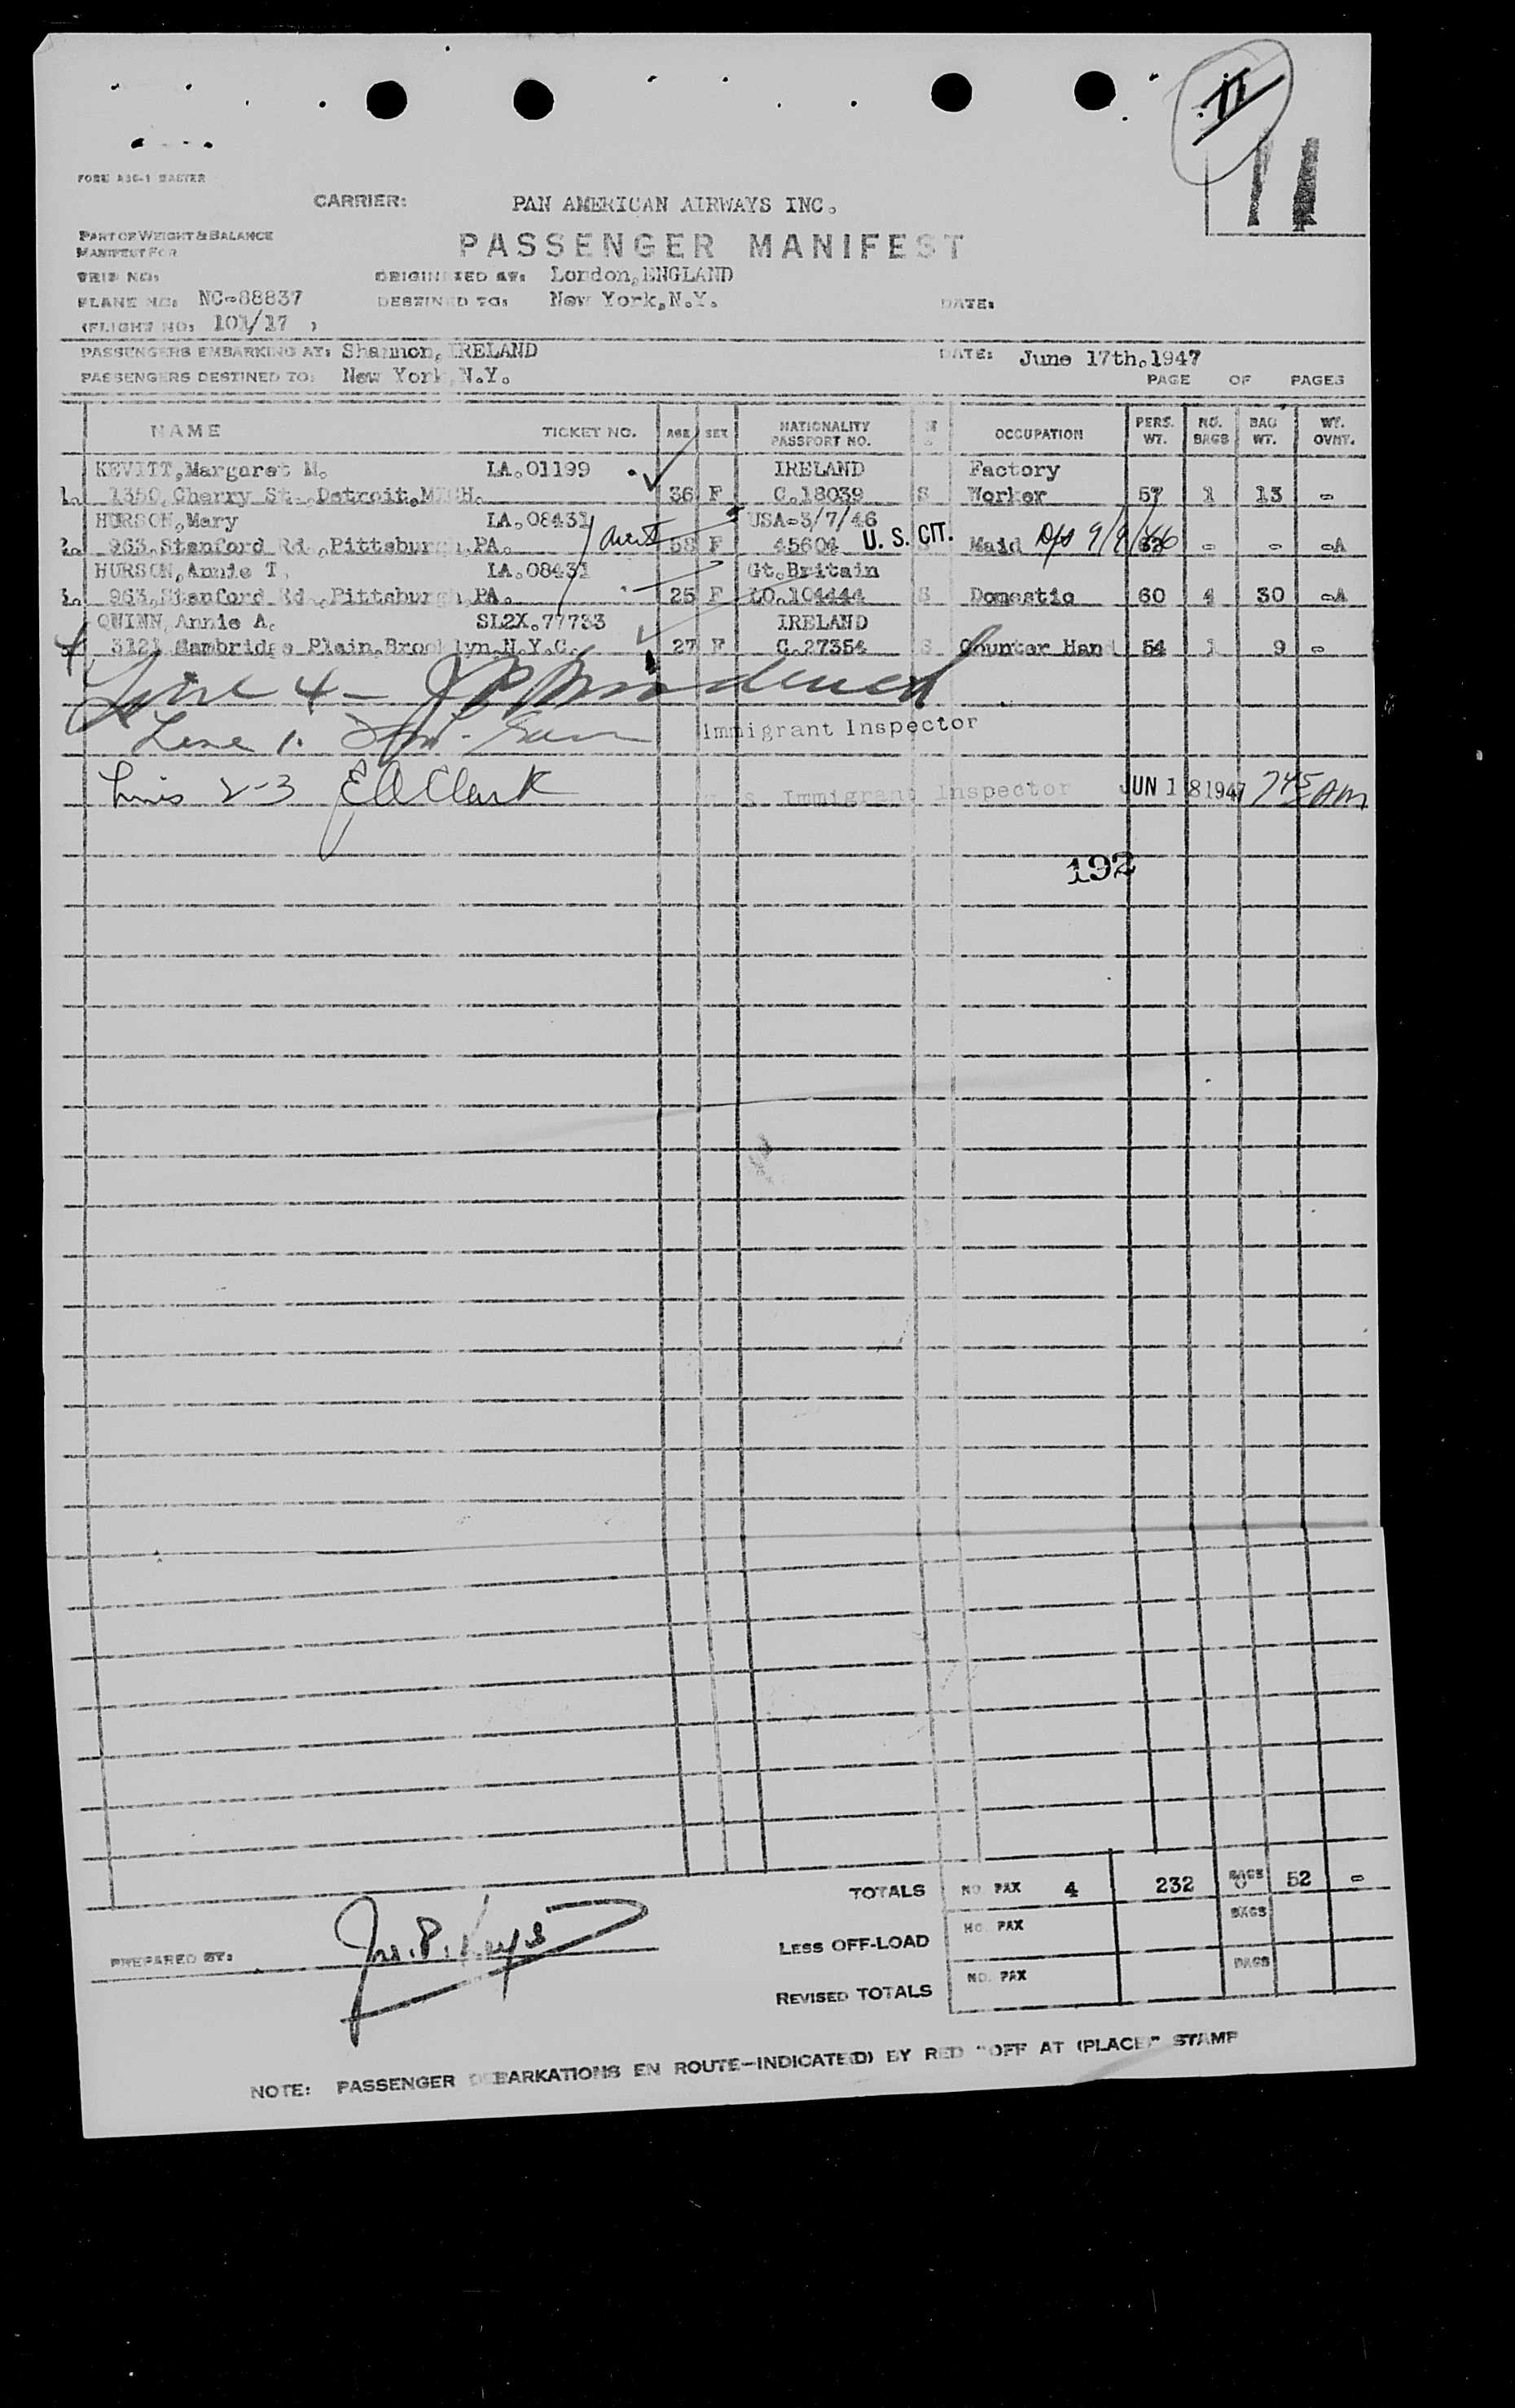 11
FORM A36-1 MASTER
CARRIER: PAN AMERICAN AIRWAYS INC.
PART OF WEIGHT & BALANCE
MANIFEST FOR
PASSENGER MANIFEST
TRIP NO: ORIGINATED AT: London, ENGLAND
PLANE NO: NC-88837 DESTINED TO: New York, N.Y. DATE:
(FLIGHT NO: 101/17 )
PASSENGERS EMBARKING AT: Shannon, IRELAND DATE: June 17th.1947
PASSENGERS DESTINED TO: New York, N.Y. PAGE OF PAGES
NAME TICKET NO. AGE SEX NATIONALITY PASSPORT NO. OCCUPATION PERS. WT. NO. BAGS BAG WT. WT. OVNT.
KEVITT, Margaret M. LA.01199 IRELAND Factory
1. 1350, Cherry St., Detroit, MICH. 36 F C.18039 S Worker 57 1 13 -
HURSON, Mary LA.08431 USA-3/7/46
2. 963, Stanford Rd., Pittsburgh, PA. 58 F 45604 U. S. CIT. S Maid - - -A
HURSON, Annie T. LA.08431 Gt.Britain
3. 963, Stanford Rd., Pittsburgh, PA. 25 F LO.104444 S Domestic 60 4 30 -A
QUINN, Annie A. SL2X.77733 IRELAND
4 3121 Cambridge Plain, Brooklyn, N.Y.C. 27 F C.27354 S Counter Hand 54 1 9 -
Line 4 -
Line 1. Immigrant Inspector
Lines 2-3 E A Clark U. S. Immigrant Inspector JUN 18 1947 7 45 AM
192
TOTALS NO. PAX 4 232 BAGS 52 -
LESS OFF-LOAD NO. PAX BAGS
PREPARED BY:
REVISED TOTALS NO. PAX BAGS
NOTE: PASSENGER DEBARKATIONS EN ROUTE-INDICATE(D) BY RED "OFF AT (PLACE)" STAMP